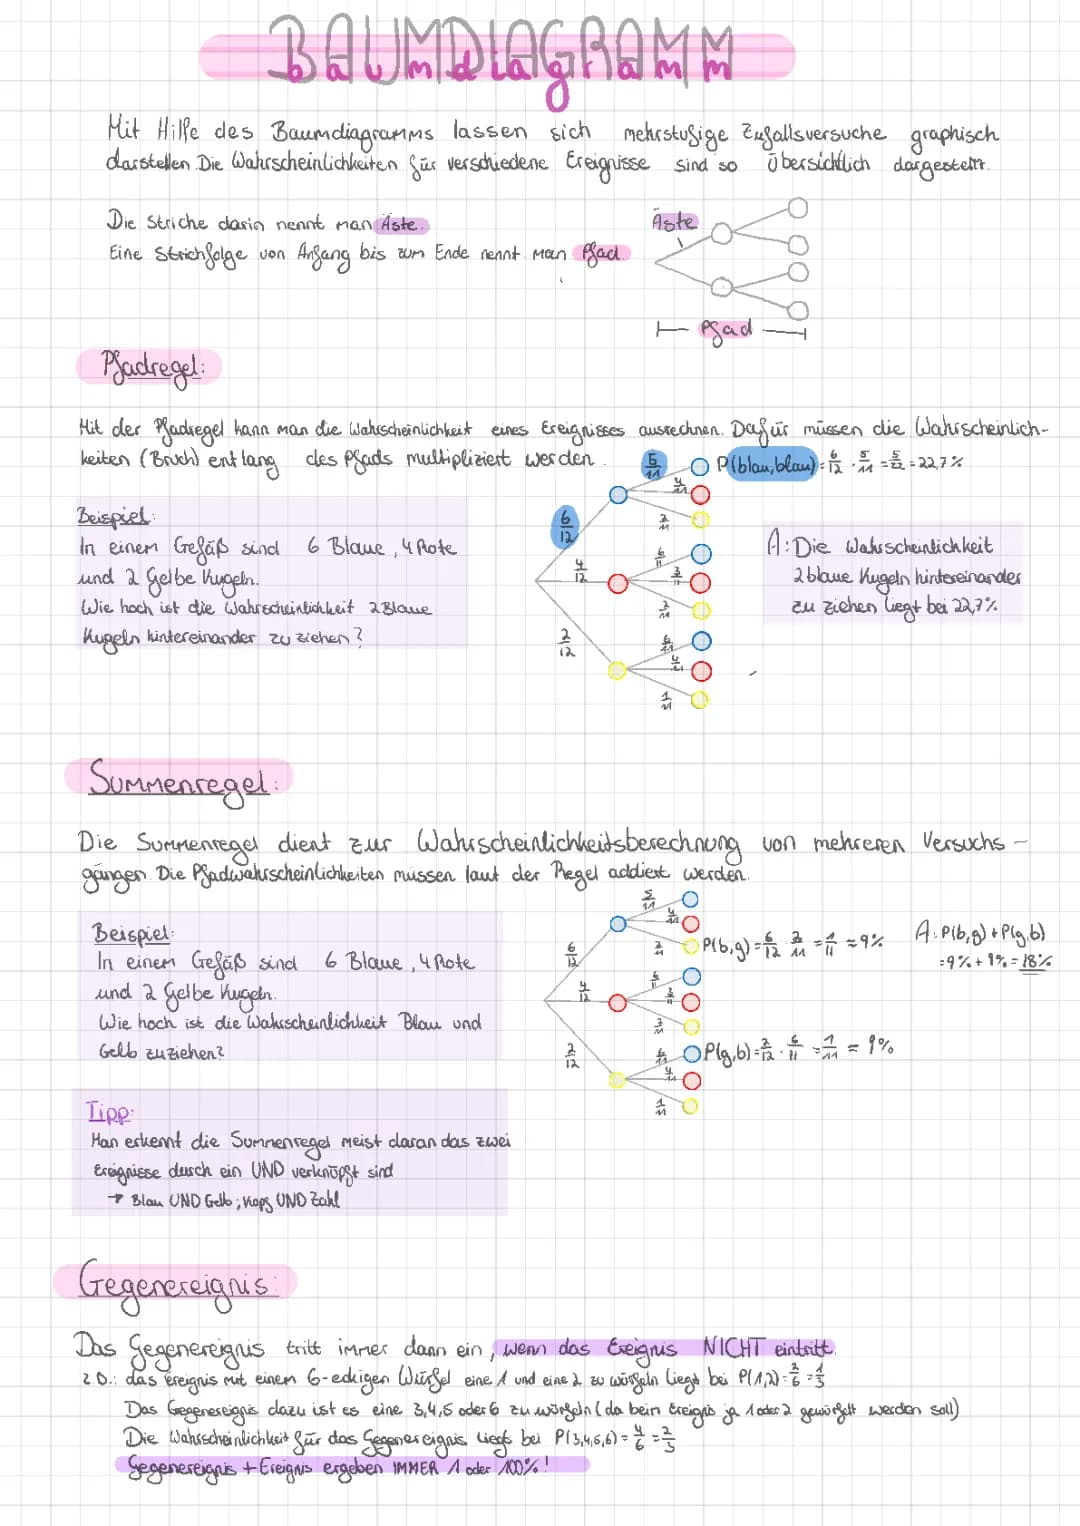 BAUMDIAGRAMM
baumdiagramm
Mit Hilfe des Baumdiagramms lassen sich mehrstufige Zufallsversuche graphisch
darstellen. Die Wahrscheinlichkeiten für verschiedene Ereignisse sind so übersichtlich dargestellt.
Die Striche darin nennt man Äste.
Eine Strichfolge von Anfang bis zum Ende nennt man Pfad.
Äste
Pfad
Pfadregel:
Mit der Pfadregel kann man die Wahrscheinlichkeit eines Ereignisses ausrechnen. Dafür müssen die Wahrscheinlich-
keiten (Bruch) entlang des Pfads multipliziert werden.
Beispiel:
In einem Gefäß sind 6 Blaue, 4 Rote
und 2 Gelbe Kugeln.
Wie hoch ist die Wahrscheinlichkeit 2 Blaue
Kugeln hintereinander zu ziehen?
6/12
4/12
2/12
5/11
4/11
2/11
6/11
3/11
2/11
6/11
4/11
1/11
P(blau,blau)=6/12 · 5/11 = 5/22 = 22,7%
A: Die Wahrscheinlichkeit
2 blaue Kugeln hintereinander
zu ziehen liegt bei 22,7%
Summenregel:
Die Summenregel dient zur Wahrscheinlichkeitsberechnung von mehreren Versuchs-
gängen. Die Pfadwahrscheinlichkeiten müssen laut der Regel addiert werden.
Beispiel:
In einem Gefäß sind 6 Blaue, 4 Rote
und 2 Gelbe Kugeln.
Wie hoch ist die Wahrscheinlichkeit Blau und
Gelb zu ziehen?
6/12
4/12
2/12
5/11
4/11
2/11
6/11
3/11
2/11
6/11
4/11
1/11
P(b,g)=6/12 · 2/11 = 1/11 ≈ 9%
P(g,b)=2/12 · 6/11 = 1/11 = 9%
A: P(b,g) + P(g,b)
= 9% + 9% = 18%
Tipp:
Man erkennt die Summenregel meist daran das zwei
Ereignisse durch ein UND verknüpft sind
→ Blau UND Gelb; Kopf UND Zahl
Gegenereignis:
Das Gegenereignis tritt immer dann ein, wenn das Ereignis NICHT eintritt.
z.B.: das Ereignis mit einem 6-eckigen Würfel eine 1 und eine 2 zu würfeln liegt bei P(1,2)=2/6 = 1/3
Das Gegenereignis dazu ist es eine 3,4,5 oder 6 zu würfeln (da beim Ereignis ja 1 oder 2 gewürfelt werden soll)
Die Wahrscheinlichkeit für das Gegenereignis liegt bei P(3,4,5,6) = 4/6 = 2/3
Gegenereignis + Ereignis ergeben IMMER 1 oder 100%!